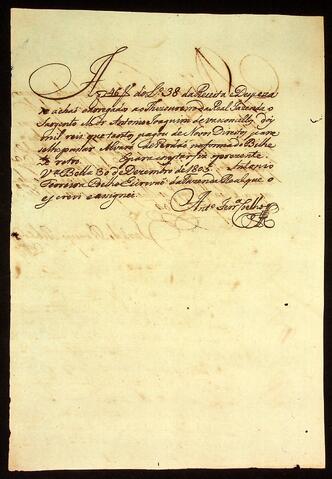 A f 46 do Lº 38 da Receita e Despeza
se acha carregado ao Thezoureiro da Real Fazenda o
Sargento Mor Antonio Joaquim de Vasconcellos
mil reis que tanto pagou de Novos Direitos para
se lhe passar Alvará de na forma do Bilhe
te retro. E para constar fiz a prezente
Vª Bella 30 de Dezembro de 1805. Antonio
Ferreira Coelho Escrivão da Fazenda Real que o
escrevi e assignei.
Antº Ferrª Coelho